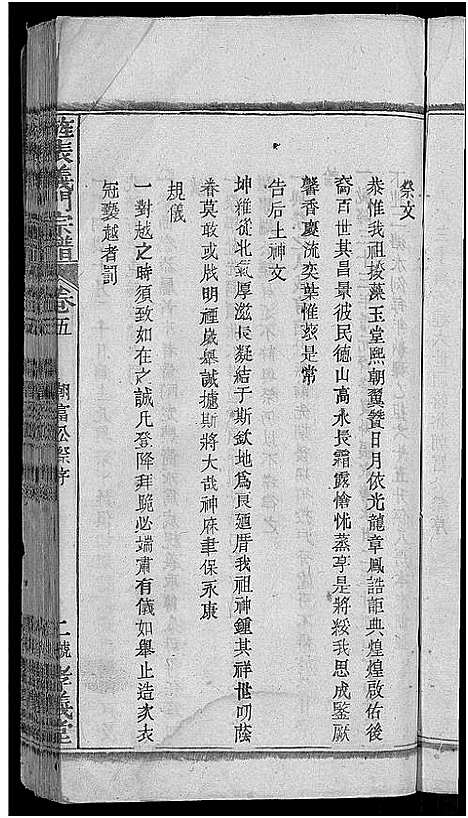 祭文
恭惟我祖掞藻玉堂熙朝翼贊日月依光龍章鳳誥詎典煌煌啟佑後
裔百世其昌景彼民德山高永長霜露愴怵蒸享是將綏我思成鑒厥
馨香慶流奕葉惟玆是常
告后土神文
坤維從北氣厚滋長凝結于斯欽地為良廻厝我祖神鍾其祥世叨蔭
眷莫敢或戕明禋歲舉誠攄斯將大哉神庥聿保永康
規儀
一對越之時須致如在之誠凡登降拜跪必端肅有儀如舉止造次衣
冠褻越者罰
張義門宗譜
卷五
潮富公祭序
二號
孝義堂